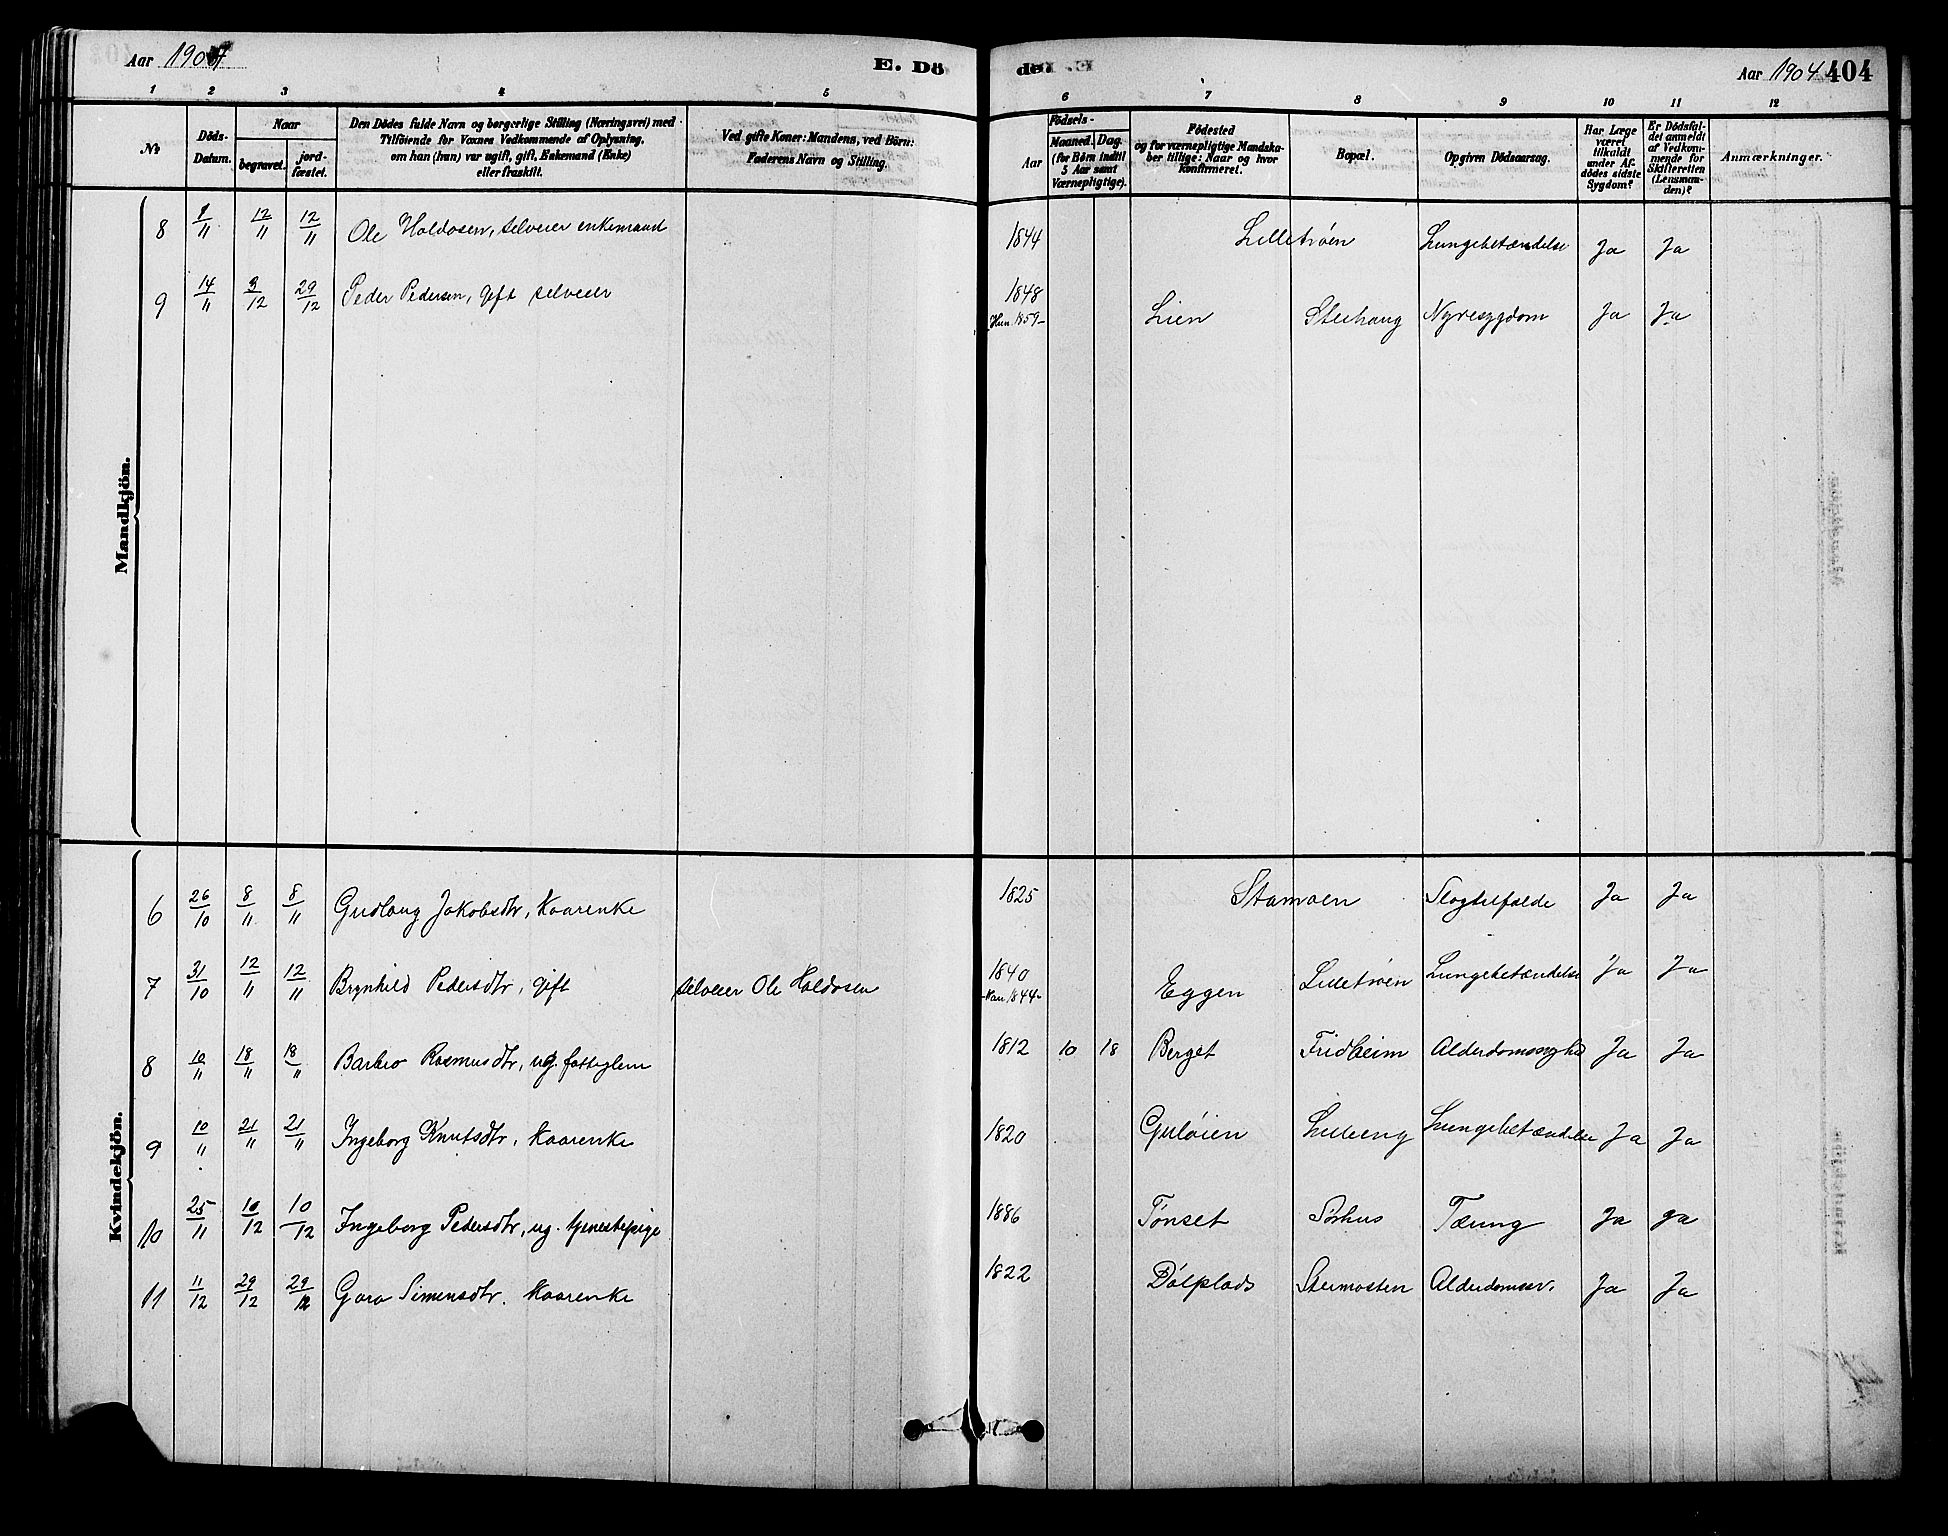 Aar 1904 E. Döde. Aar 1904 404
1 2 3 4 5 6 7 8 9 10 11 12
No
Döds-Datum.
Naar
begravet.
jord-fæstet.
Den Dödes fulde Navn og borgerlige Stilling (Næringsvei) med
Tilföiende for Voxnes Vedkommende af Oplysning,
om han (hun) var ugift, gift, Enkemand (Enke)
eller fraskilt.
Ved gifte Koner: Mandens, ved Börn:
Faderens Navn og Stilling.
Födsels-
Aar
Maaned. Dag.
(for Börn indtil
5 Aar samt
Værnepligtige).
Födested
og for værnepligtige Mandska-
ber tillige: Naar og hvor
konfirmeret.
Bopæl.
Opgiven Dödsaarsag.
Har Læge
været
tilkaldt
under Af-
dödes sidste
Sygdom?
Er Dödsfal-
det anmeldt
af Vedkom-
mende for
Skifteretten
(Lensman-
den)?
Anmærkninger.
Mandkjön.
8 8/11 12/11 12/11 Ole Haldosen, selveier enkemand 1844 Lilletrøen Lungebetændelse Ja Ja
9 14/11 3/12 29/12 Peder Pedersen, gift selveier 1848 Hun 1859- Lien Steihaug Nyresygdom Ja Ja
Kvindekjön.
6 26/10 8/11 8/11 Gudlaug Jakobsdtr, Kaarenke 1825 Stamoen Slagtilfælde Ja Ja
7 31/10 12/11 12/11 Brynhild Pedersdtr, gift selveier Ole Haldosen 1840 Man 1844- Eggen Lilletrøen Lungebetændelse Ja Ja
8 10/11 18/11 18/11 Barbro Rasmusdtr, ug. fattiglem 1812 10 18 Berget Fridheim Ja Ja
9 10/11 21/11 21/11 Ingeborg Knutsdtr, Kaarenke 1820 Guløien Lilleeng Lungebetændelse Ja Ja
10 25/11 10/12 10/12 Ingeborg Pedersdtr, ug. tjenestepige 1886 Tønset Tæring Ja ja
11 11/12 29/12 29/12 Goro Simensdtr. Kaarenke 1822 Dølplads Steimosten Alderdomssv. Ja Ja